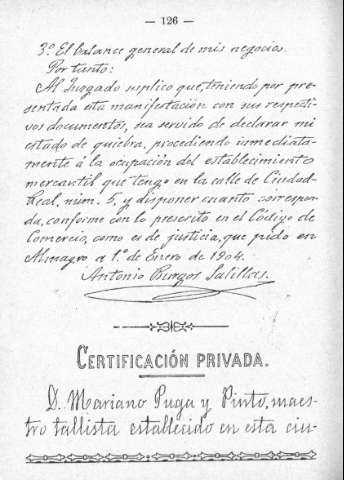 — 126 —
3.º El balance general de mis negocios.
Por tanto:
Al Juzgado suplico que, teniendo por pre-
sentada esta manifestación con sus respecti-
vos documentos, sea servido de declarar mi
estado de quiebra, procediendo inmediata-
mente á la ocupación del establecimiento
mercantil que tengo en la calle de Ciudad-
Real, núm. 5, y disponer cuanto correspon-
da, conforme con lo prescrito en el Código de
Comercio, como es de justicia, que pido en
Almagro a 1.º de Enero de 1904.
Antonio Burgos Salillas.
CERTIFICACIÓN PRIVADA.
D. Mariano Puga y Pinto, maes-
tro tallista establecido en esta ciu-